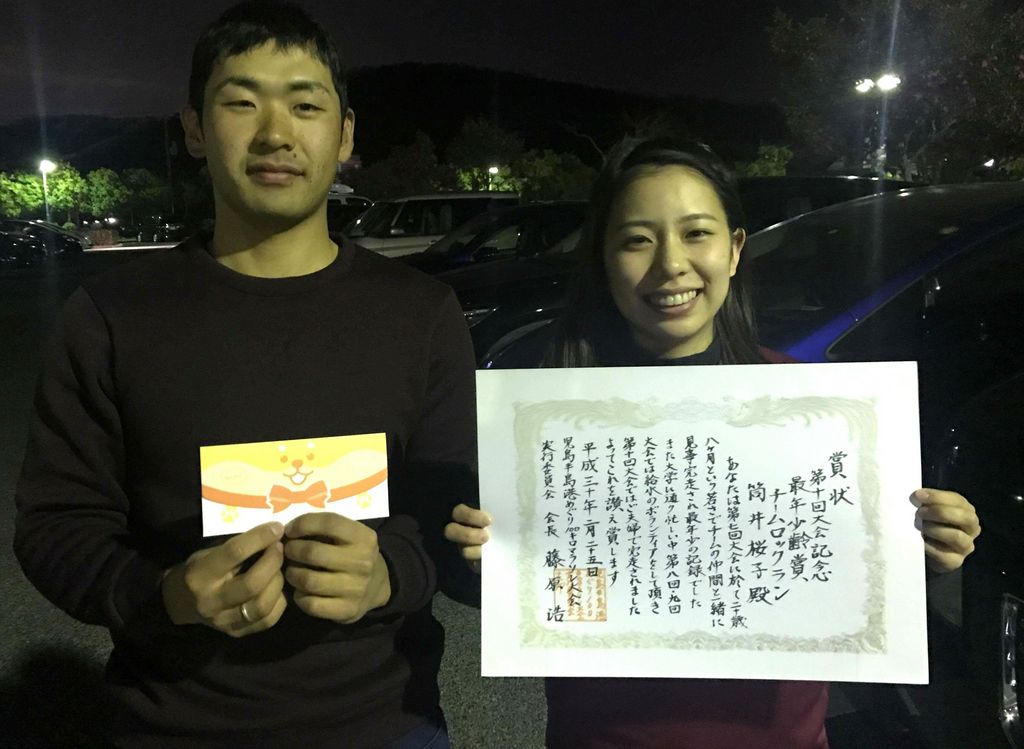 賞状
第十回大会記念
最年少齢賞
チームロックラン
筒井桜子殿
あなたは第七回大会に於て二十歳
八ヶ月という若さでチームの仲間と一緒に
見事完走され最年少の記録でした
また大学に通う忙しい中第八回・九回
大会では給水のボランティアをして頂き
第十回大会ではご夫婦で完走されました
よってこれを讃え賞します
平成三十年二月二十五日
児島半島港めぐり100キロマラソン大会
実行委員会 会長 藤原 浩